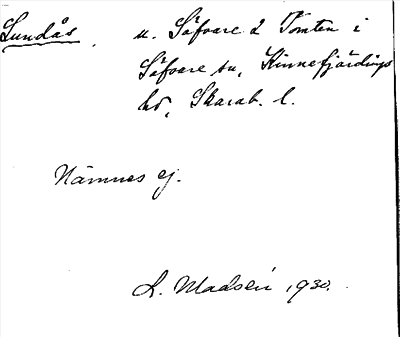 Lundås. u. Säfvare 2 Tomten i
Säfvare sn, Kinnefjärdings
hd, Skarab. l.
Nämnes ej.
L. Madsén 1930.